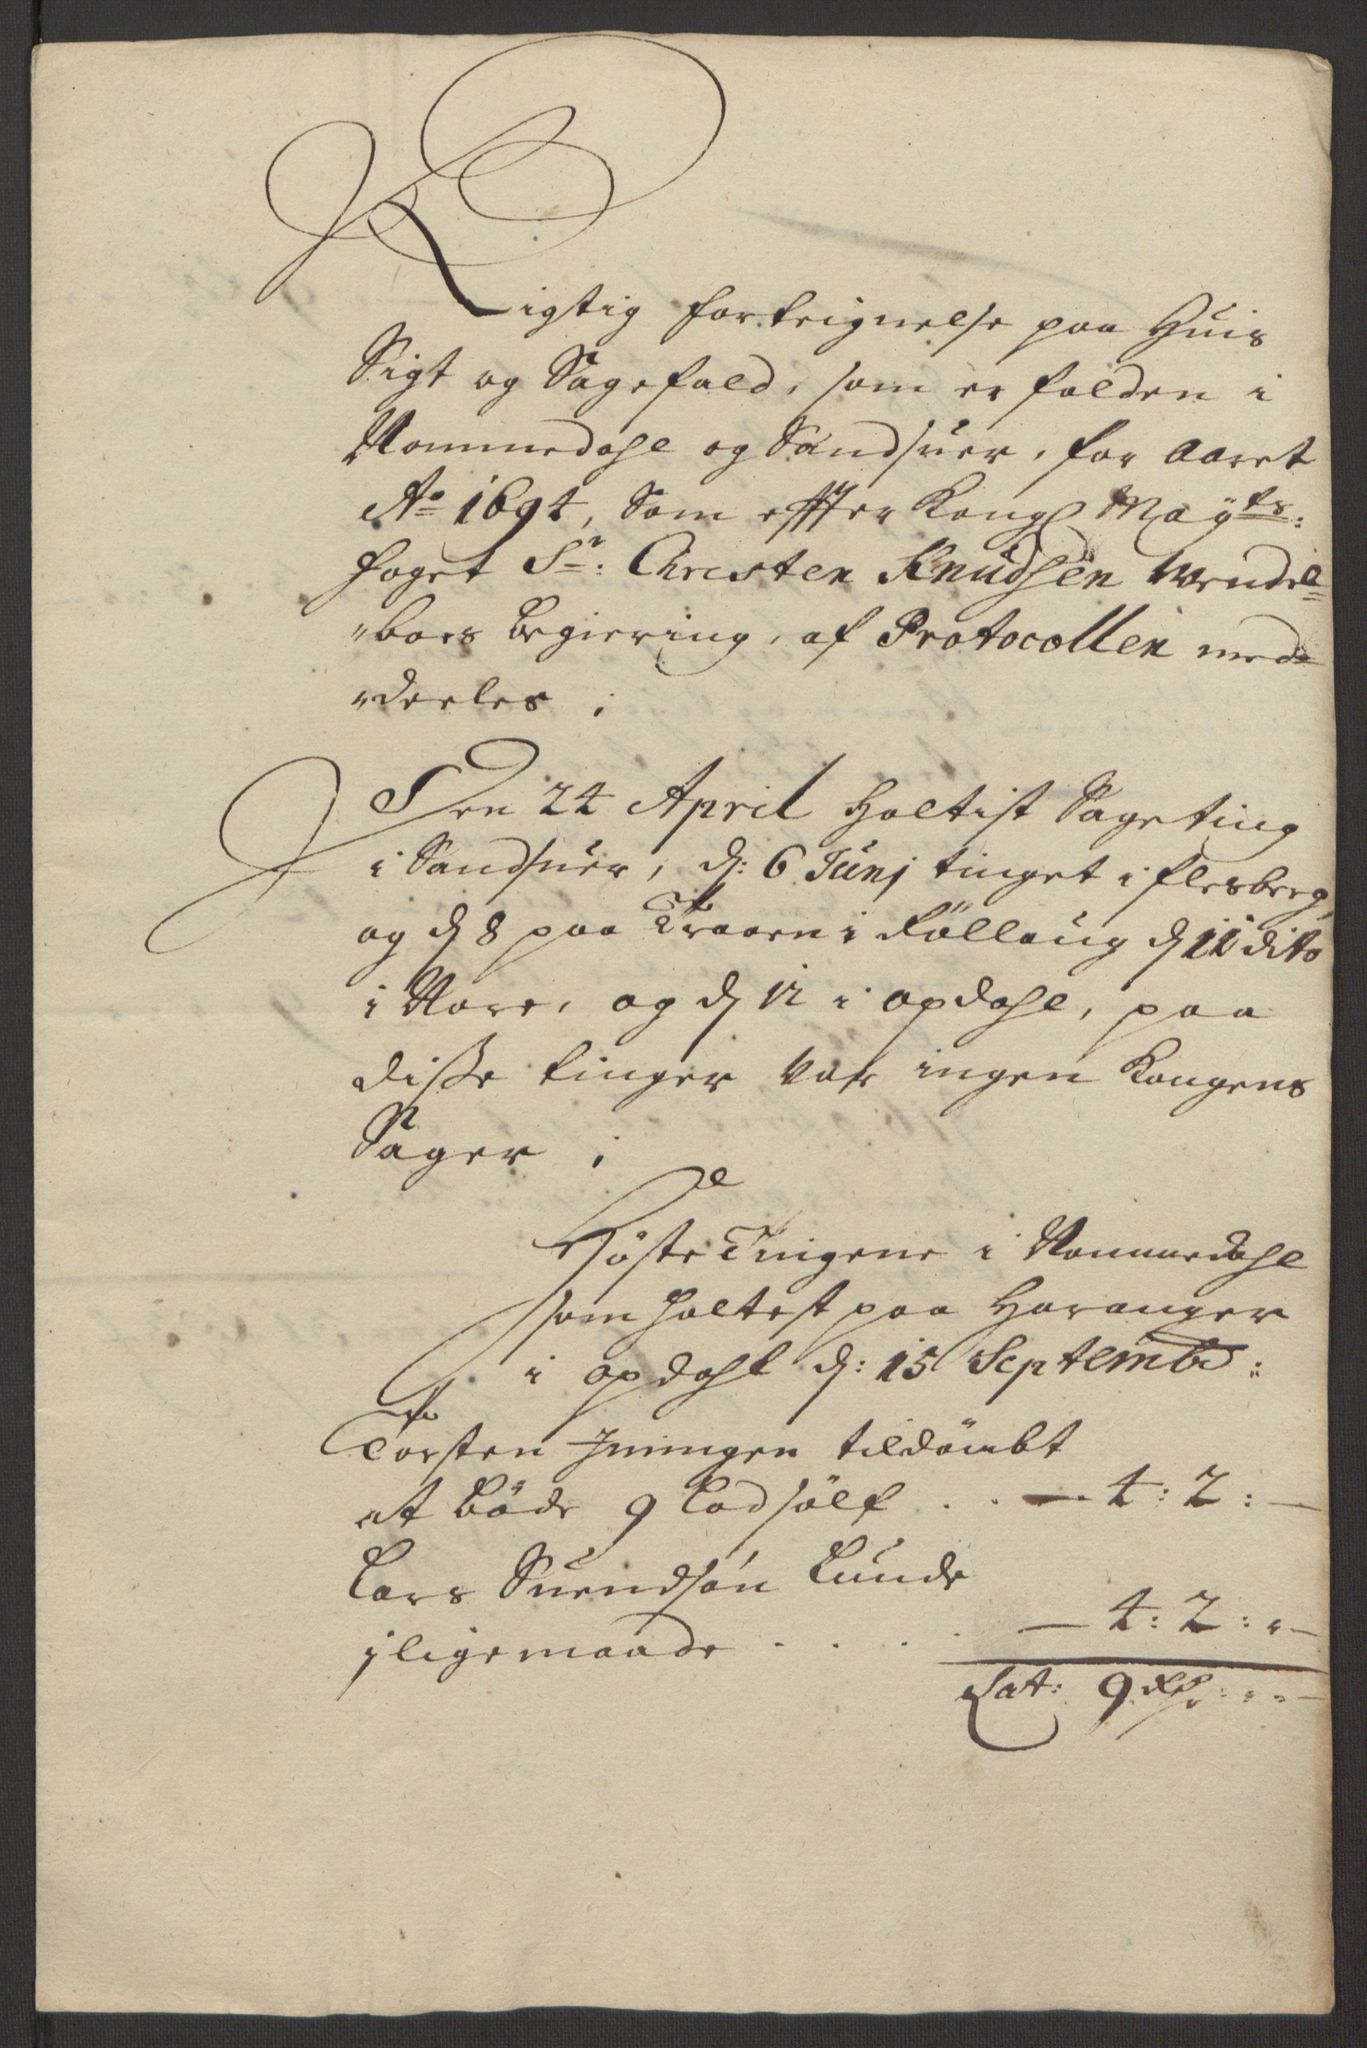 Rigtig forteignelse paa Huis
Sigt og Sagefald, som er falden i
Nommedahl og Sandsuer, for Aaret
Ao 1694, Som effter Kongl Mayts:
foget Sr: Christen Knudsen Wendel=
"boes begiering, af Protocollen med=
"deeles ;
Den 24 April Holtist Sageting
i Sandsuer, d: 6 Junj tinget i flesberg,
og d 8 paa Traaen i Röllaug d 11 dito
i Nore, og d 12 i Opdahl, paa
disse tinger var ingen Kongens
Sager ;
Höste Tingene i Nommedahl
som holtest paa Haranger
i Opdahl d: 15 Septembr:
Torsten Jmingen tildömbt
at böde 9 Lod sölf . . — 4: 2: —
Lars Suendsön Lunde
jligemaade . . . . — 4: 2: " —
Lat: 9 Rdr: " " —